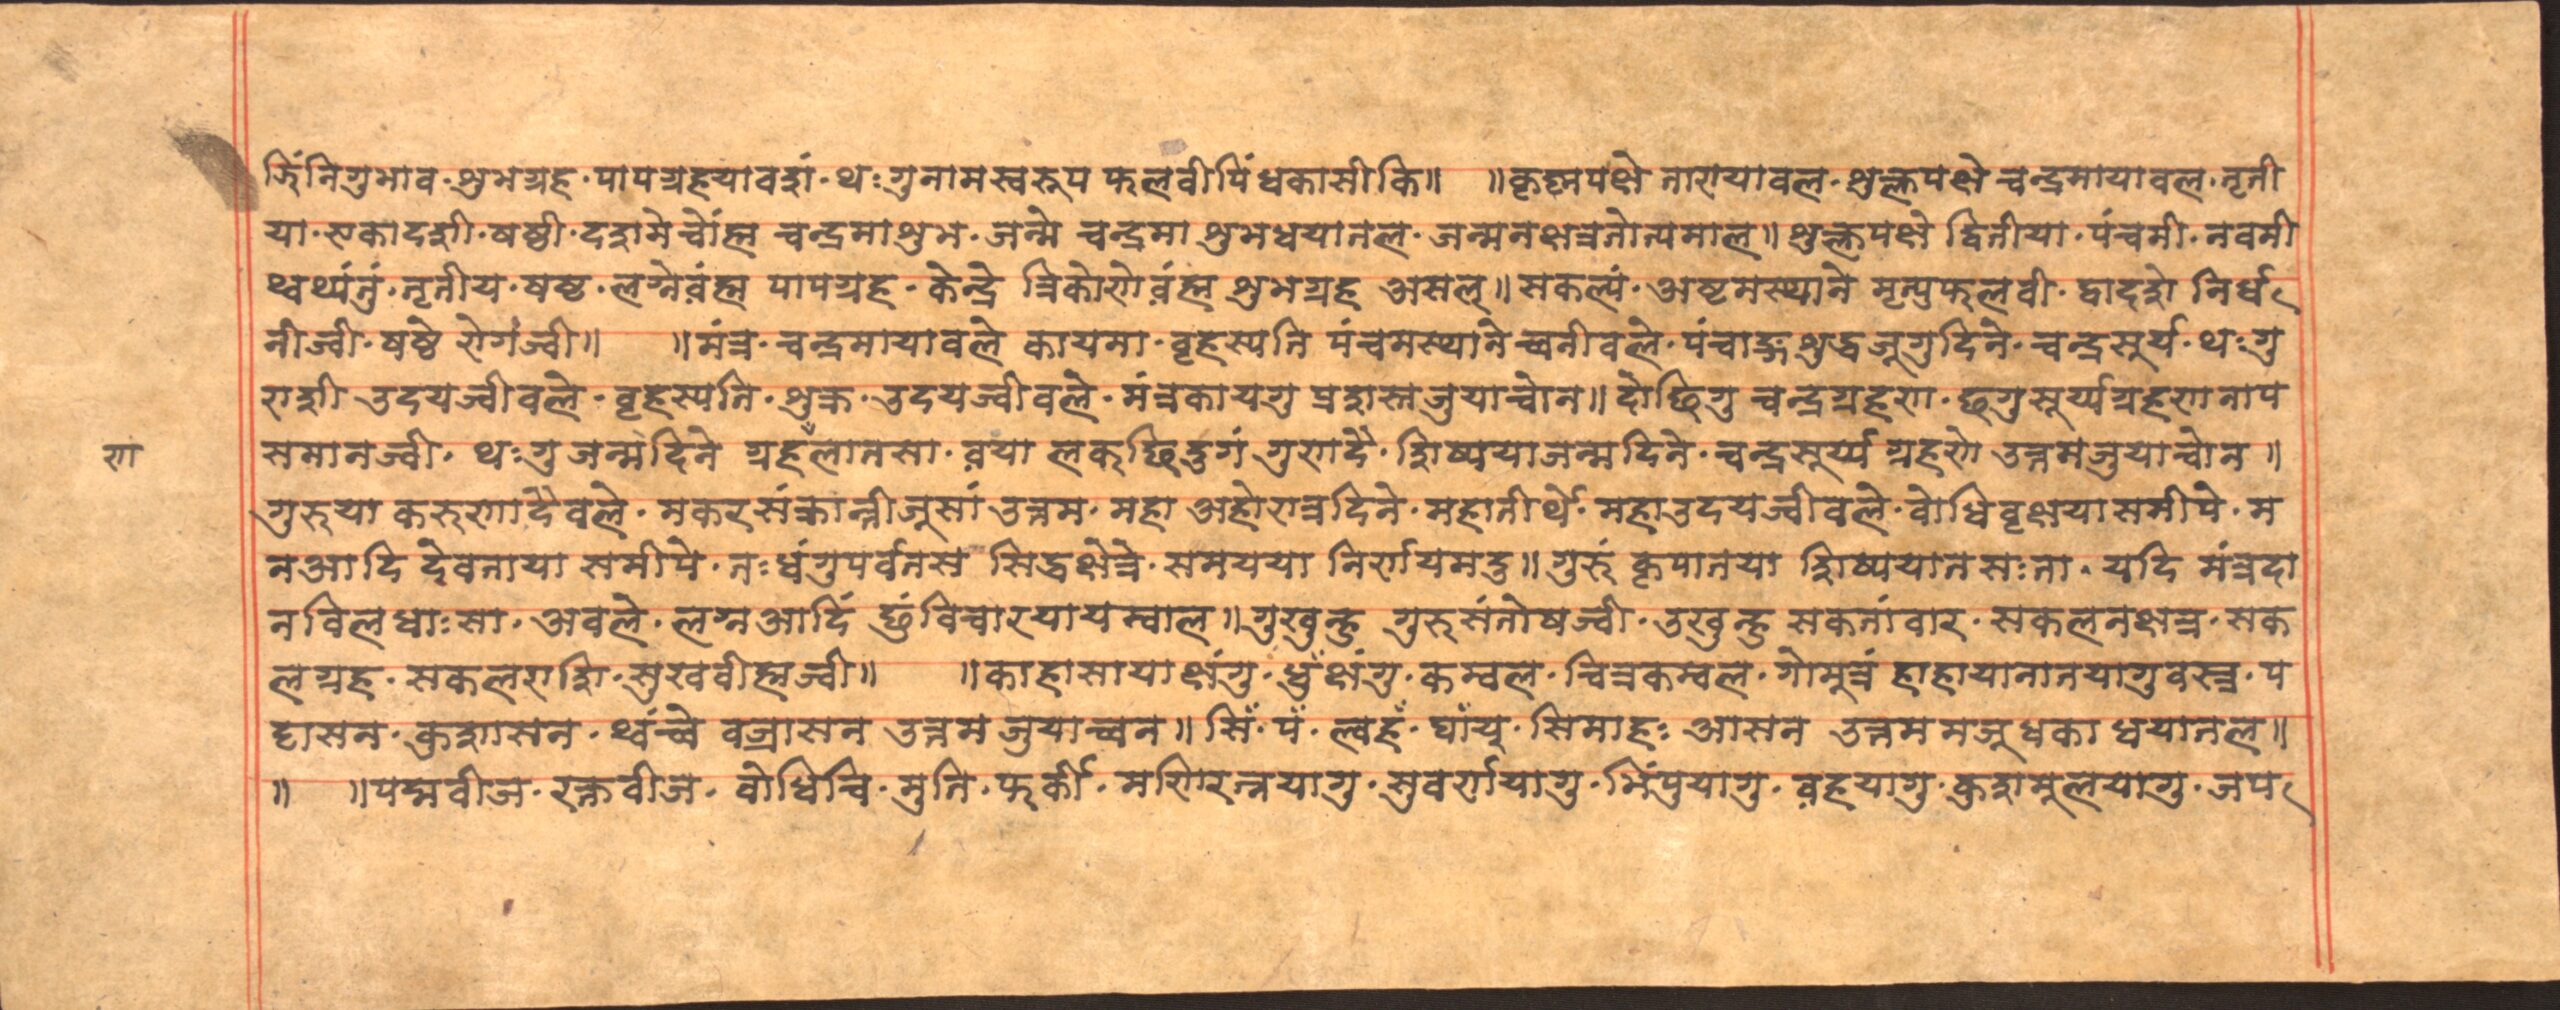 जिंनिगुभाव॰शुभग्रह॰पापग्रहयावशां॰थःगुनामस्वरूप फलवीपिंधकासीकि॥ ॥कृष्नपक्षे तारायावल॰शुक्लपक्षे चन्द्रमायावल॰तृती
या॰एकादशी॰षष्ठी॰दशमेचोंह्म चन्द्रमाशुभ॰जन्मे चन्द्रमा शुभधयातल॰जन्मनक्षत्रतोत्यमाल॥शुक्लपक्षे द्वितीया॰पंचमी॰नवमी
थ्वथ्यंतुं॰तृतीय॰षष्ठ॰लग्नेवंह्म पापग्रह॰केन्द्रे त्रिकोणेवंह्म शुभग्रह असल॥सकल्यं॰अष्टमस्थाने मृत्युफलवी॰द्वादशे निर्ध
नीज्वी॰षष्ठे रोगंज्वी॥ ॥मंत्र॰चन्द्रमायावले कायमा॰वृहस्पति पंचमस्थाने च्वनीवले॰पंचाङ्गशुद्धजूगुदिने॰चन्द्रसूर्य॰थःगु
राशी उदयज्वीवले॰वृहस्पति॰शुक्र॰उदयज्वीवले॰मंत्रकायगु प्रशस्तजुयाचोन॥दोछिगु चन्द्रग्रहण॰छगुसूर्य्यग्रहणनाप
समानज्वी॰थःगुजन्मदिने ग्रहँलातसा॰वया लकछिदुगं गुणदै॰शिष्ययाजन्मदिने॰चन्द्रसूर्य्य ग्रहणे उत्तमजुयाचोन॥
ण
गुरुया करुणादैवले॰मकरसंक्रान्तीजूसां उत्तम॰महा अहोरात्रदिने॰महातीर्थे॰महाउदयज्वीवले॰वोधिवृक्षयासमीपे॰म
नआदि देवताया समीपे॰तःधंगुपर्वतस सिद्धक्षेत्रे॰समयया निर्णयमदु॥गुरुं कृपातया शिष्ययातसःता॰यदि मंत्रदा
नविलधाःसा॰अवले॰लग्नआदिं छुंविचारयायम्वाल॥गुखुन्हु गुरुसंतोषज्वी॰उखुन्हु सकतांवार॰सकलनक्षत्र॰सक
लग्रह॰सकलराशि॰सुखवीह्मज्वी॥ ॥काहासायाक्षंगु॰धुँक्षंगु॰कम्वल॰चित्रकम्वल॰गोमुत्रं हाहायानातयागुवस्त्र॰प
द्मासन॰कुशासन॰थ्वंच्वे वज्रासन उत्तम जुयाच्वन॥सिं॰पं॰ल्वहँ॰घाँयु॰सिमाहः आसन उत्तममजूधका धयातल॥
॥ ॥पद्मवीज॰रक्तवीज॰वोधिचि॰मुति॰फर्की॰मणिरत्नयागु॰सुवर्णयागु॰भिंपुयागु॰वहयागु॰कुशमूलयागु॰जप